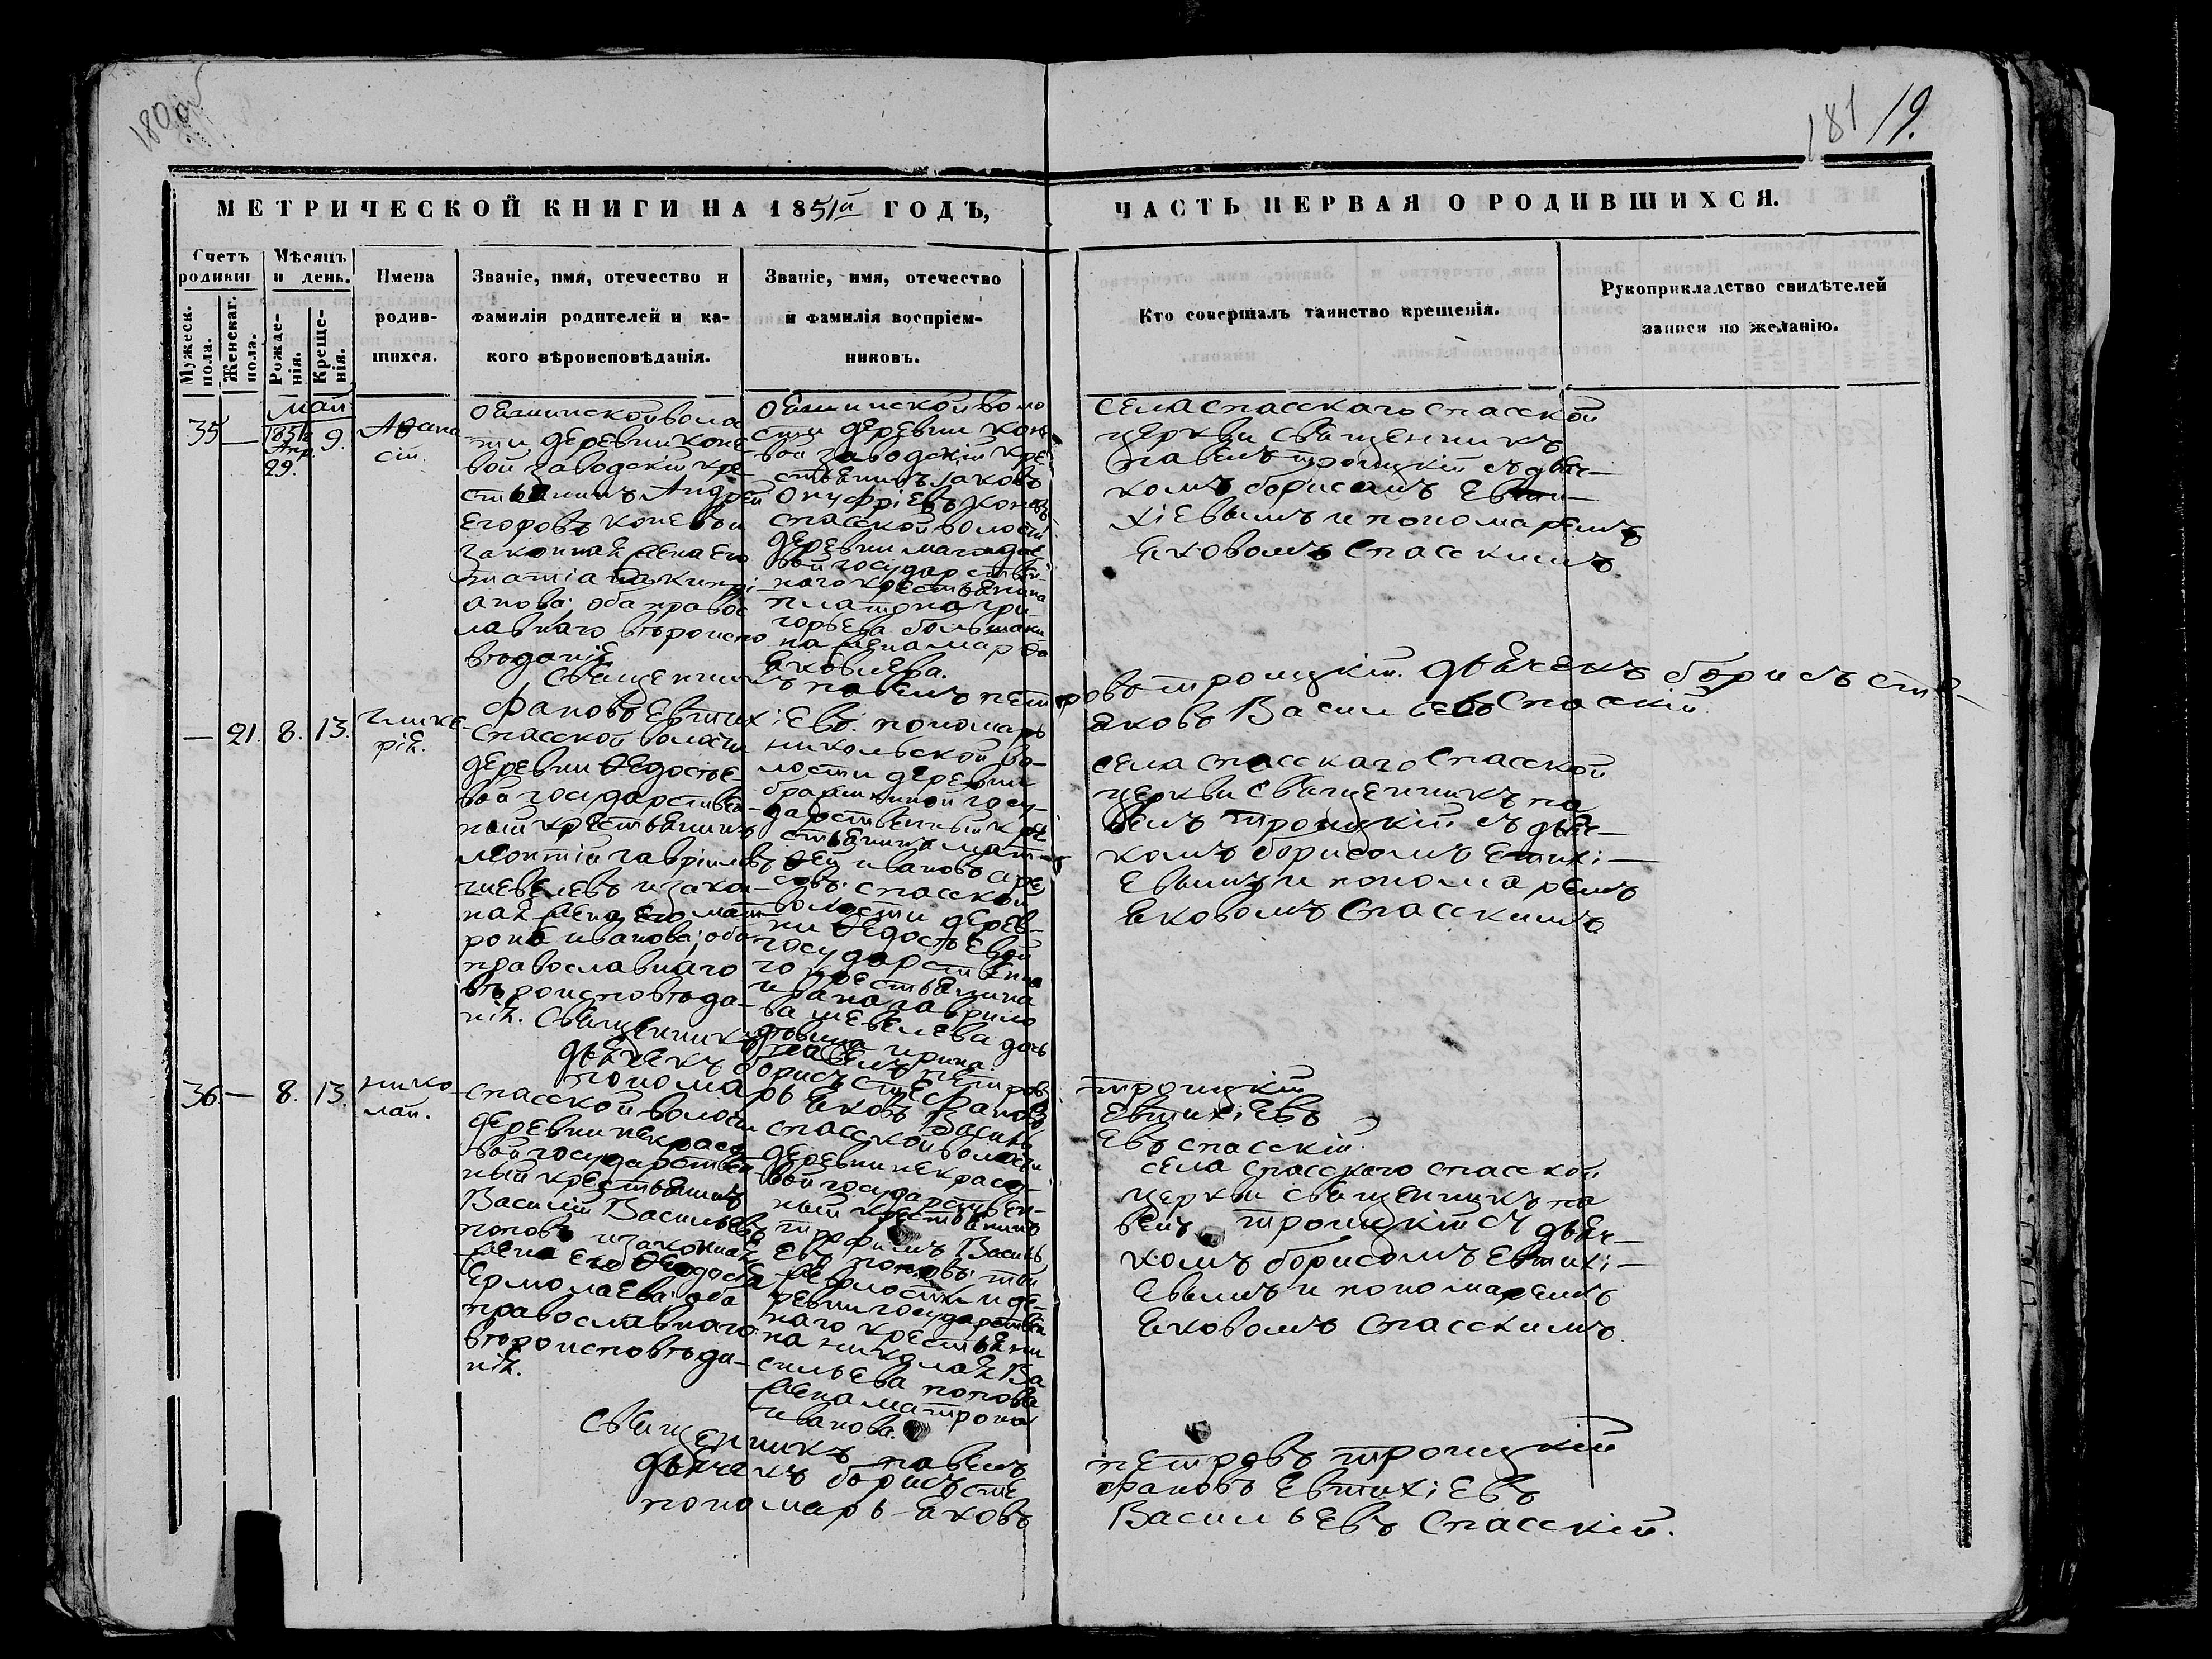 180 об
181 19.
МЕТРИЧЕСКОЙ КНИГИ НА 1851й ГОДЪ,
ЧАСТЬ ПЕРВАЯ О РОДИВШИХСЯ.
Счетъ родивш
Мѣсяцъ и день.
Мужеск. пола.
Женскаг. пола.
Рожде-нія.
Креще-нія.
Имена
родив-
шихся.
Званіе, имя, отечество и
фамилія родителей и ка-
кого вѣроисповѣданія.
Званіе, имя, отечество
и фамилія воспріем-
никовъ.
Кто совершалъ таинство крещенія.
Рукоприкладство свидѣтелей
записи по желанію.
май
35 — 1851 Апр. 29. 9.
Аѳана
сій.
волос
ти деревни коне
вой заводскій кре
стьянинъ Андрей
Егоровъ коневъ и
законная жена его
татіана кипрі
анова; оба правос
лавнаго вѣроиспо
вѣданія
воло
сти деревни коне
вой заводскій кре
стьянинъ Іаковъ
Онуфріевъ коневъ
спасской волости
деревни
вой государствен
наго крестьянина
платона гри
горьева большаки
на жена марѳа
яковлева.
села спасскаго спасской
церкви священникъ
павелъ троицкій съ дьяч—
комъ борисомъ Евти—
хіевымъ и пономаремъ
яковомъ спасскимъ.
священникъ павелъ петровъ троицкій. дьячекъ борисъ сте—
фановъ Евтихіевъ. пономарь яковъ Васильевъ Спасскій.
— 21. 8. 13.
глике
рія.
спасской волости
деревни Ѳедосѣе
вой государствен
ный крестьянинъ
леонтій гавріиловъ
шевелевъ и закон
ная жена его мат
рона иванова; оба
православнаго
вѣроисповѣда—
нія.
никольской во—
лости деревни
госу—
дарственный кре
стьянинъ мат—
ѳей ивановъ
спасской
волости дерев—
ни Ѳедосѣевой
государственна
го крестьянина
ивана гаврило
ва шевелева дочь
дѣвица ирина.
села спасскаго Спасской
церкви священникъ па
велъ троицкій съ дьяч—
комъ борисомъ Евтихі—
евымъ и пономаремъ
яковомъ Спасскимъ.
Священникъ павелъ петровъ троицкій
дьячекъ борисъ стефановъ Евтихіевъ
пономарь яковъ Василь евъ спасскій.
36. — 8. 13.
нико
лай.
спасской волости
деревни некрасо
вой государствен
ный крестьянинъ
Василій Васильевъ
поповъ и законная
жена его Ѳедосья
Ермолаева; оба
православнаго
вѣроисповѣда—
нія.
спасской волости
деревни некрасо—
вой государствен—
ный крестьянинъ
трофимъ Василь
евъ поповъ; той
же волости и де—
ревни государствен
наго крестьяни
на николая Ва
сильева попова
жена матрона
иванова.
села спасскаго спасской
церкви священникъ па
велъ троицкій съ дьяч—
комъ борисомъ Евтихі—
евымъ и пономаремъ
яковомъ Спасскимъ.
Священникъ павелъ петровъ троицкій
дьячекъ борисъ сте фановъ Евтихіевъ
пономарь яковъ Васильевъ Спасскій.